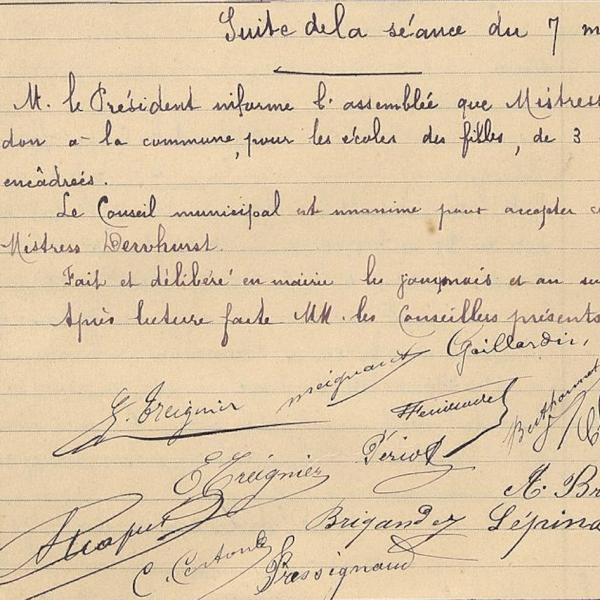 Suite de la séance du 7 m
M. le Président informe l'assemblée que Mistress
don a la commune, pour les écoles des filles, de 3
encâdreés.
Le Conseil municipal est unanime pour accepter c
Mistress Dewhurst.
Fait et délibéré en mairie les jour, mois et an su
Après lecture faite MM. les Conseillers présents
Gaillardin,
G. Treignier
E Treignier Périot
A. Br
Brigandez Lépina
C. Cartoule Pressignaud